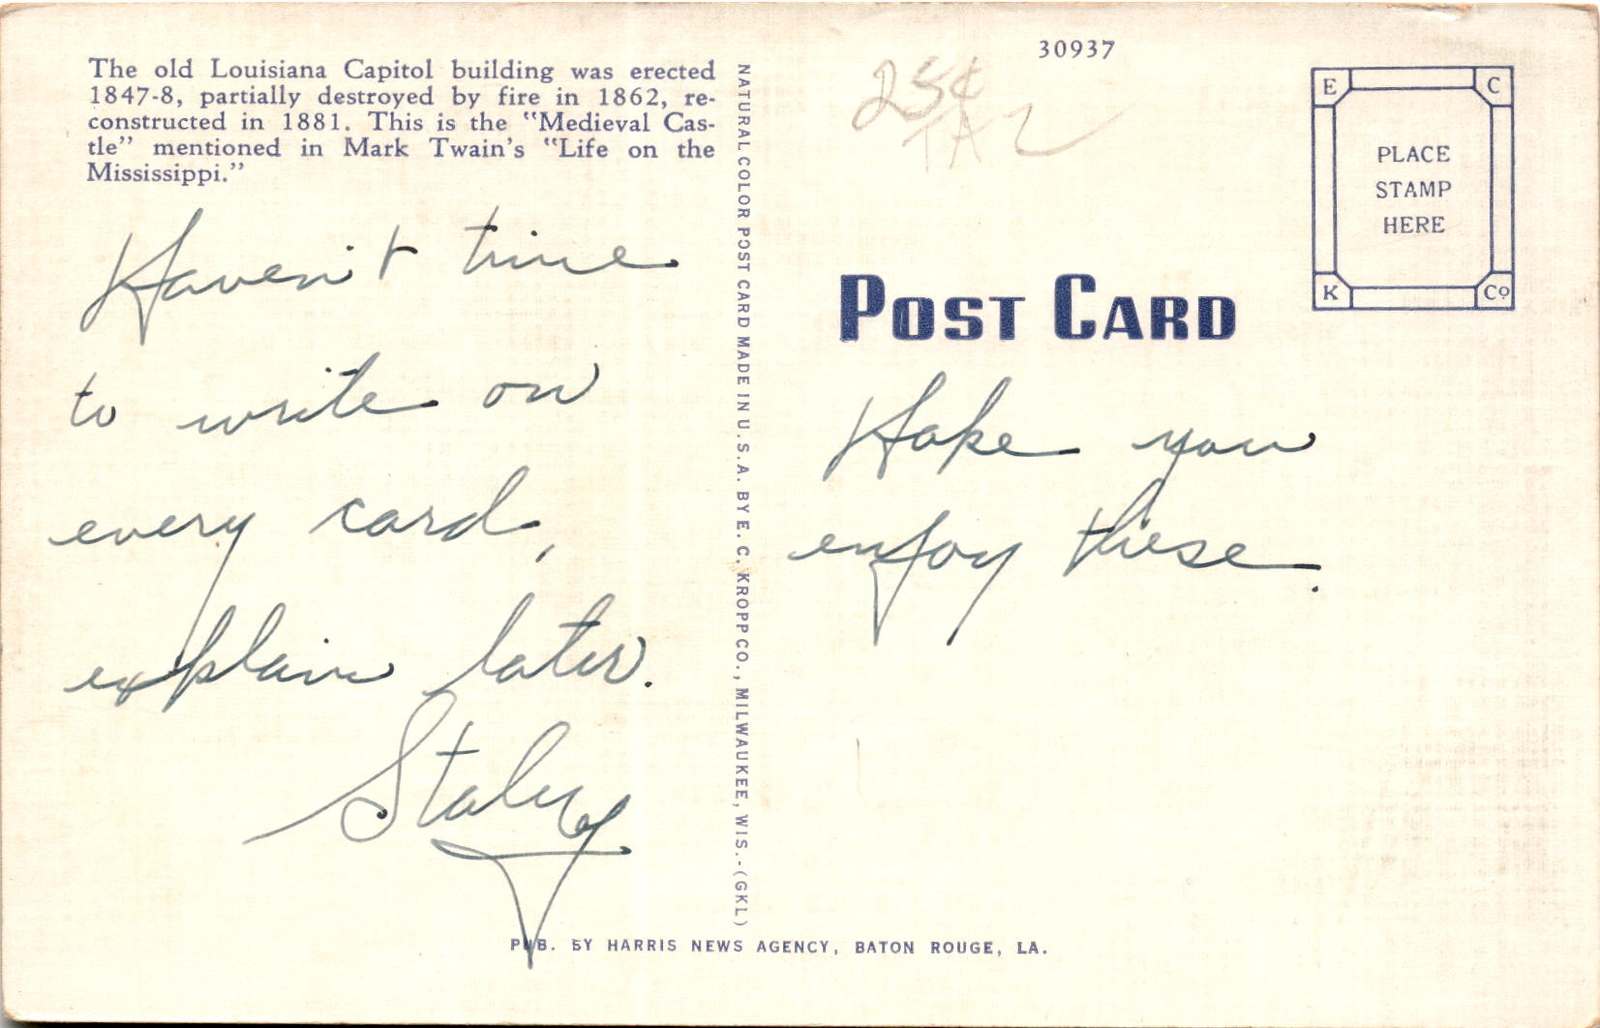 The old Louisiana Capitol building was erected
1847-8, partially destroyed by fire in 1862, re-
constructed in 1881. This is the "Medieval Cas-
tle" mentioned in Mark Twain's "Life on the
Mississippi."
Haven't time
to write on
every card,
explain later.
Staley
NATURAL COLOR POST CARD MADE IN U.S.A. BY E. C. KROPP CO., MILWAUKEE, WIS.-(GKL)
30937
25¢
E C
PLACE
STAMP
HERE
K Co
POST CARD
Hope you
enjoy these.
PUB. BY HARRIS NEWS AGENCY, BATON ROUGE, LA.